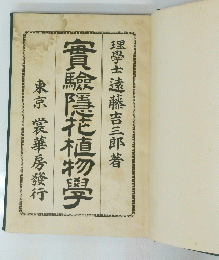 理學士 遠藤吉三郎著
實驗隱花植物學
東京 裳華房發行